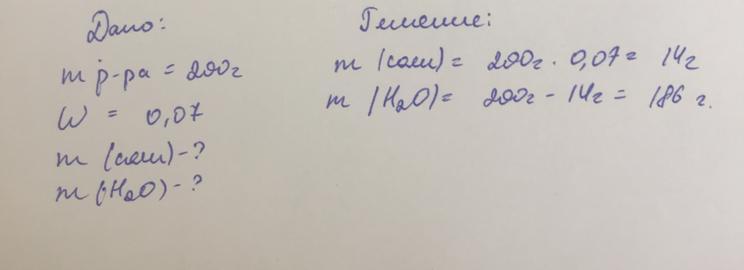 Дано:
m р-ра = 200г
W = 0,07
m (соли) - ?
m (H2O) - ?
Решение:
m (соли) = 200г · 0,07 = 14г
m (H2O) = 200г - 14г = 186 г.